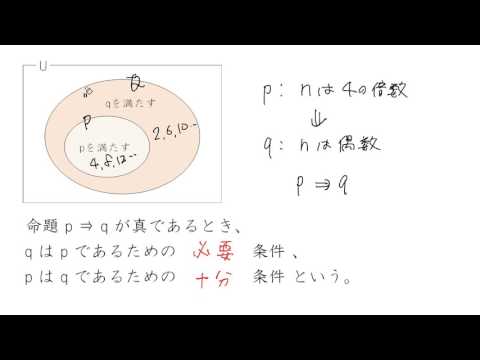 U
Q
qを満たす
P
pを満たす
4,8,12…
2,6,10…
p: nは4の倍数
⇓
q: nは偶数
p ⇒ q
命題 p ⇒ q が真であるとき、
q は p であるための 必要 条件 、
p は q であるための 十分 条件 という。